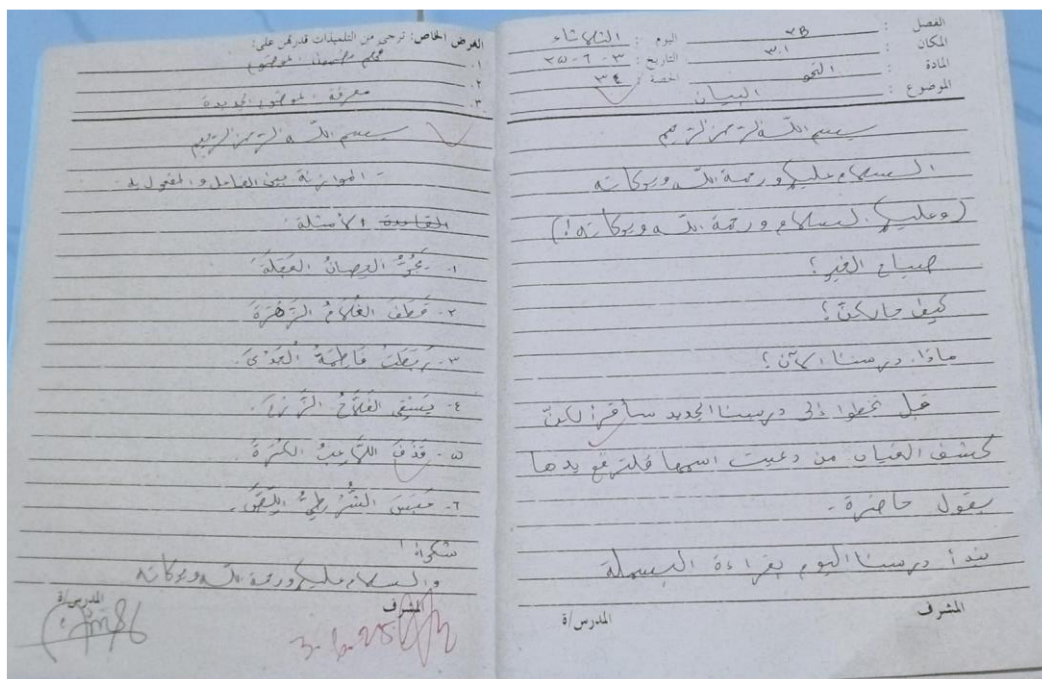 الفصل : ٢B
المكان : ٣٠١
المادة : النحو
الموضوع : البيان
اليوم : الثلاثاء
التاريخ : ٣-٦-٢٥
الحصة : ٣٤
بسم الله الرحمن الرحيم
السلام عليكم ورحمة الله وبركاته
(وعليكم السلام ورحمة الله وبركاته!)
صباح الخير؟
كيف حالكنّ؟
ماذا درسنا الآن؟
قبل نخطوا إلى درسنا الجديد سأقرأ لكنّ
كشف الغياب من دعيت اسمها فلترفع يدها
بقول حاضرة.
نبدأ درسنا اليوم بقراءة البسملة
المشرف
المدرس/ة
الغرض الخاص: نرجى من التلميذات قدرتهن على:
١.
٢.
٣. معرفة الجديدة
بسم الله الرحمن الرحيم
- الموازنة بين الفاعل والمفعول به.
القاعدة الأمثلة:
١- يَجُرُّ الحِصانُ العَجَلَةَ.
٢- قَطَفَ الغُلَامُ الزَّهْرَةَ
٣- رَبَطَتْ فَاطِمَةُ الجَدْيَ.
٤- يَسْقِي الفَلَّاحُ الزَّرْعَ.
٥- قَذَفَ اللَّاعِبُ الكُرَةَ
٦- حَبَسَ الشُّرْطِيُّ اللِّصَّ.
شكرا!
والسلام عليكم ورحمة الله وبركاته
المشرف
المدرس/ة
3-6-25